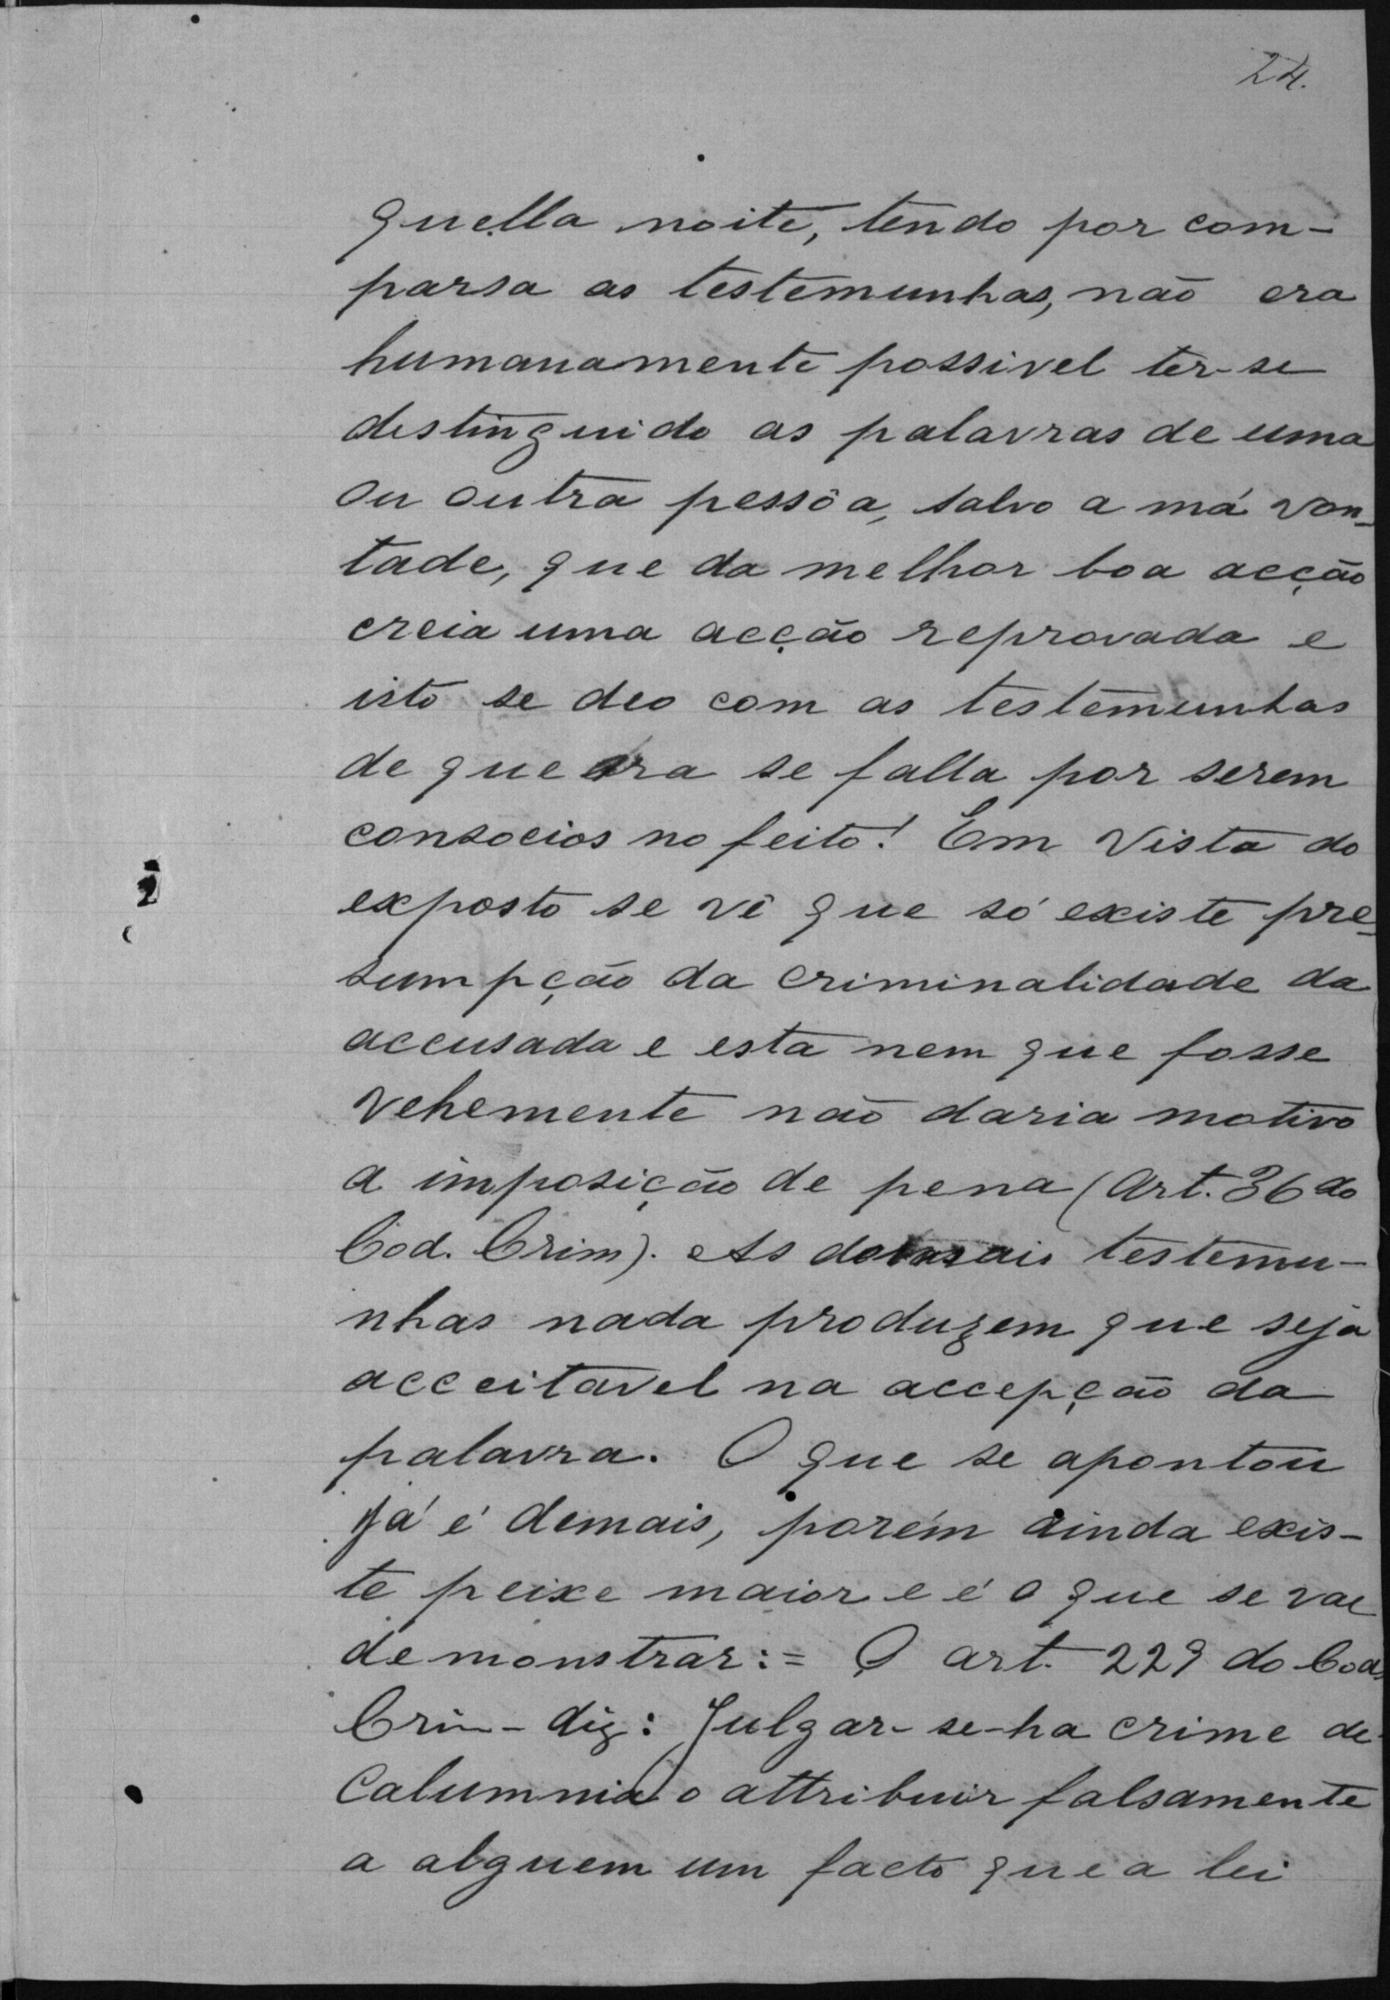 24.
quella noite, tendo por com-
parsa as testemunhas, não era
humanamente possivel ter-se
destinguido as palavras de uma
ou outra pessôa, salvo a má von-
tade, que da melhor boa acção
creia uma acção reprovada e
isto se deo com as testemunhas
de que ora se falla por serem
consocios no feito! Em vista do
exposto se vê que só existe pre-
sumpção da criminalidade da
accusada e esta nem que fosse
vehemente não daria motivo
a imposição de pena (Art. 36 do
Cod. Crim). As demais testemu-
nhas nada produzem que seja
acceitavel na accepção da
palavra. O que se apontou
já é demais, porém ainda exis-
te peixe maior e é o que se vae
demonstrar:= O art. 229 do Cod.
Crim - diz: Julgar-se-ha crime de
Calumnia o attribuir falsamente
a alguem um facto que a lei